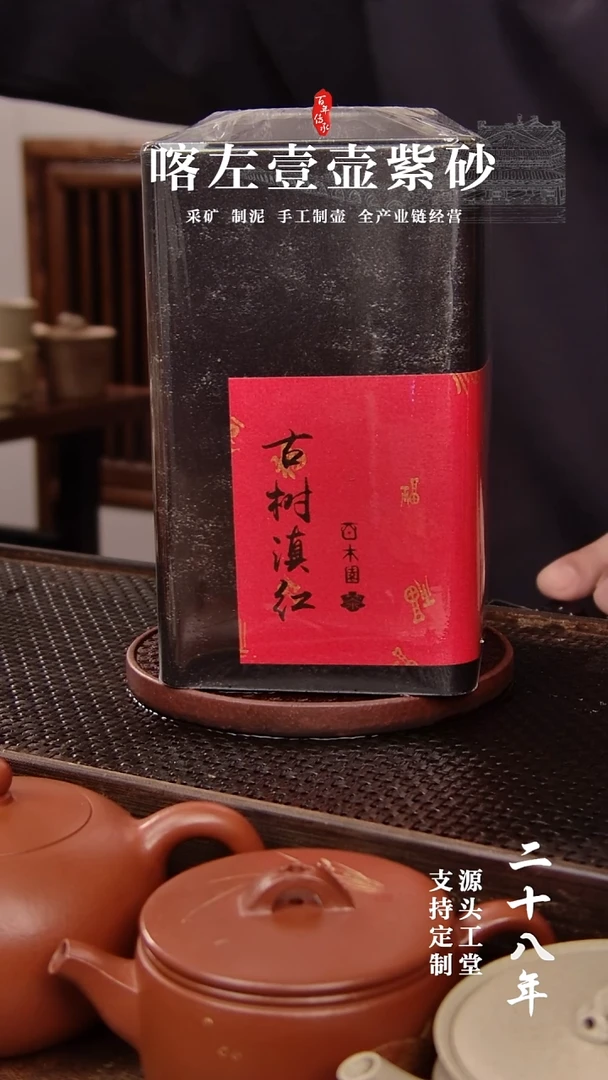 百年传承
喀左壹壶紫砂
采矿 制泥 手工制壶 全产业链经营
古树滇红
百木園
福
二十八年
源头工堂
支持定制